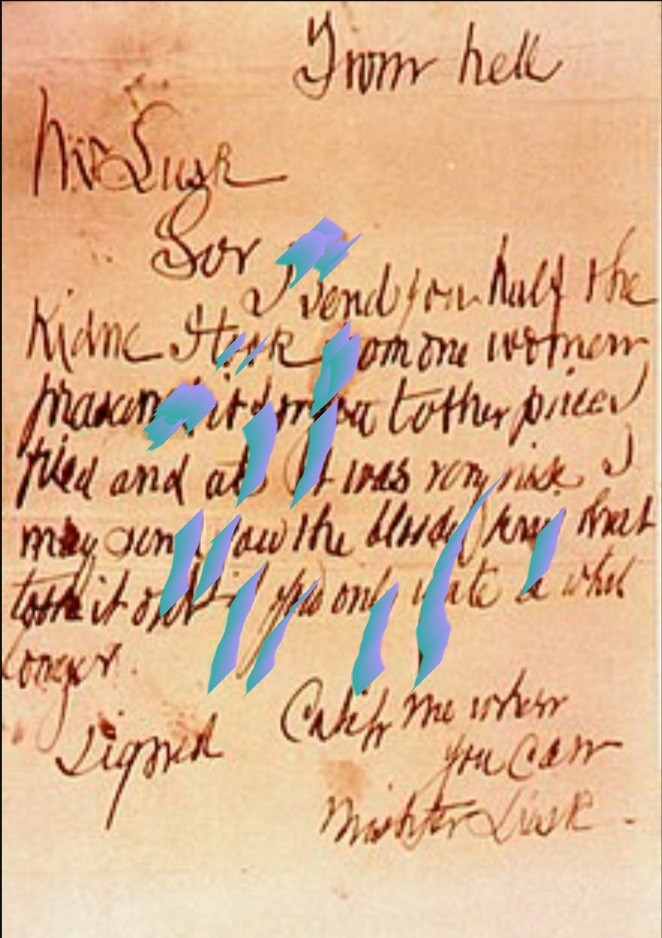 From hell
Mr Lusk
Sor
I send you half the
Kidne I took omone women
prasarved it for you tother piece
fried and ate it was very nise I
may send you the bloody knif that
took it out if you only wate a whil
longer.
signed Catch me when
you can
Mishter Lusk.